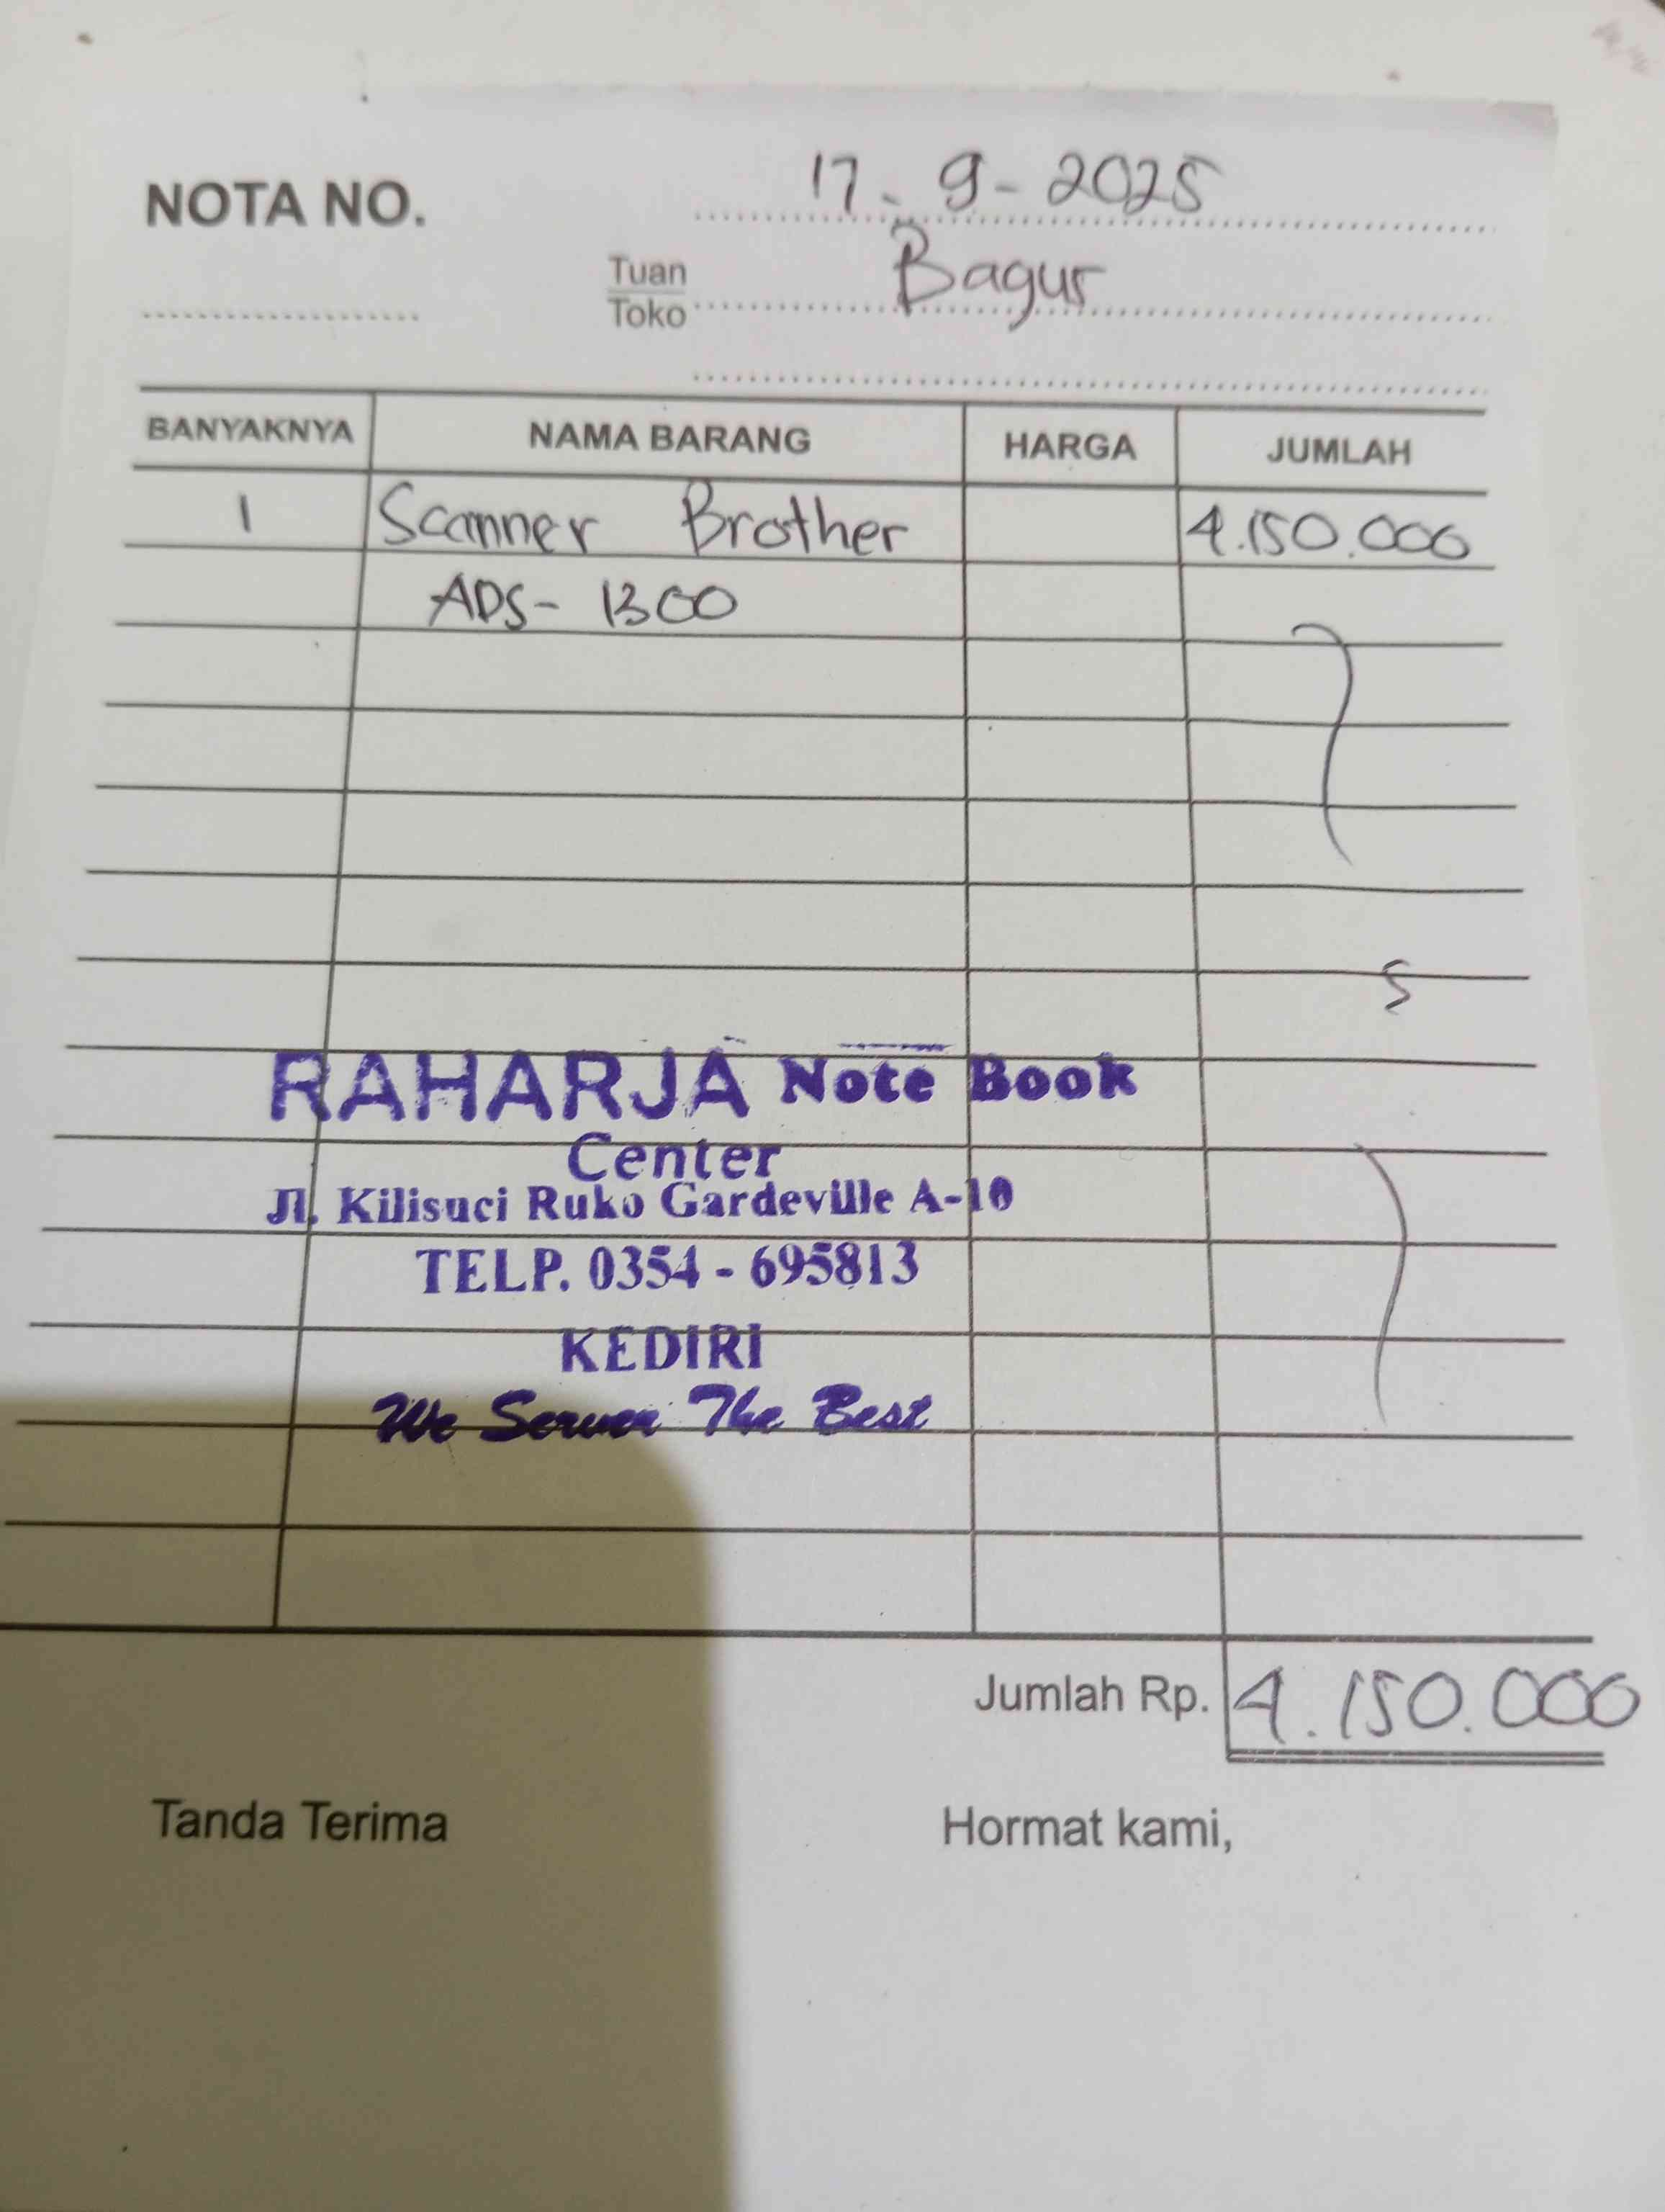 NOTA NO.
17-9-2025
Tuan
Toko
Bagus
BANYAKNYA NAMA BARANG HARGA JUMLAH
1 Scanner Brother 4.150.000
ADS-1300
RAHARJA Note Book
Center
Jl. Kilisuci Ruko Gardeville A-10
TELP. 0354 - 695813
KEDIRI
We Server The Best
Jumlah Rp. 4.150.000
Tanda Terima Hormat kami,